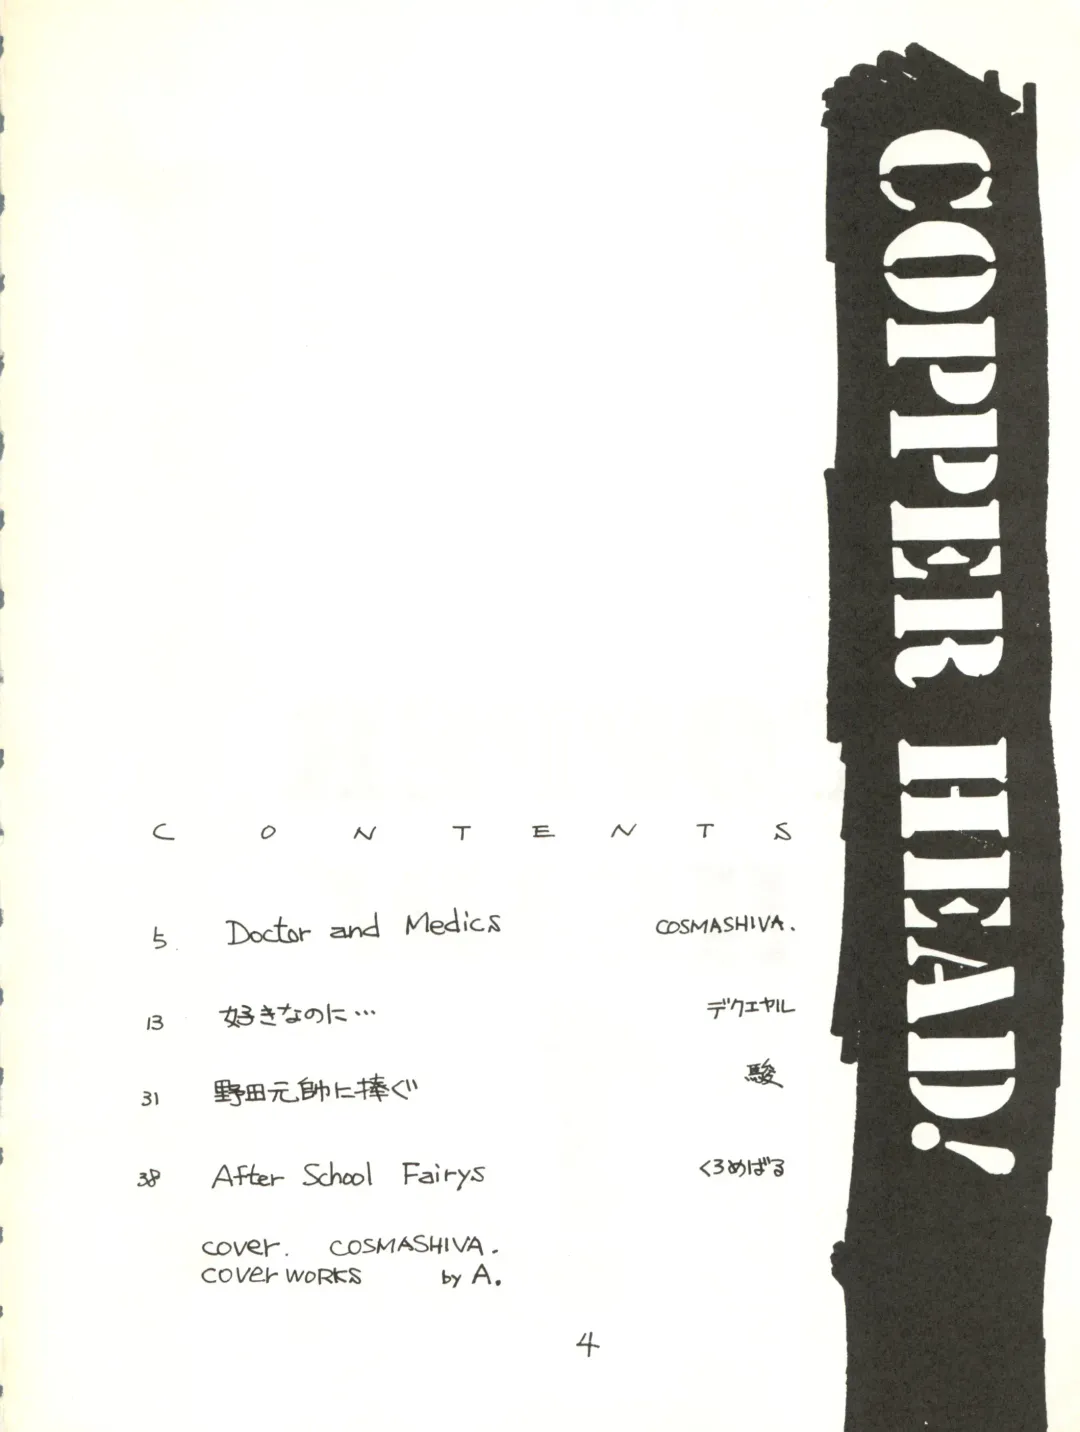 COPPER HEAD!
CONTENTS
5. Doctor and Medics COSMASHIVA.
13 好きなのに… デクエヤル
31 野田元帥に捧ぐ 駿
38 After School Fairys くろめばる
cover. COSMASHIVA.
cover WORKS by A.
4